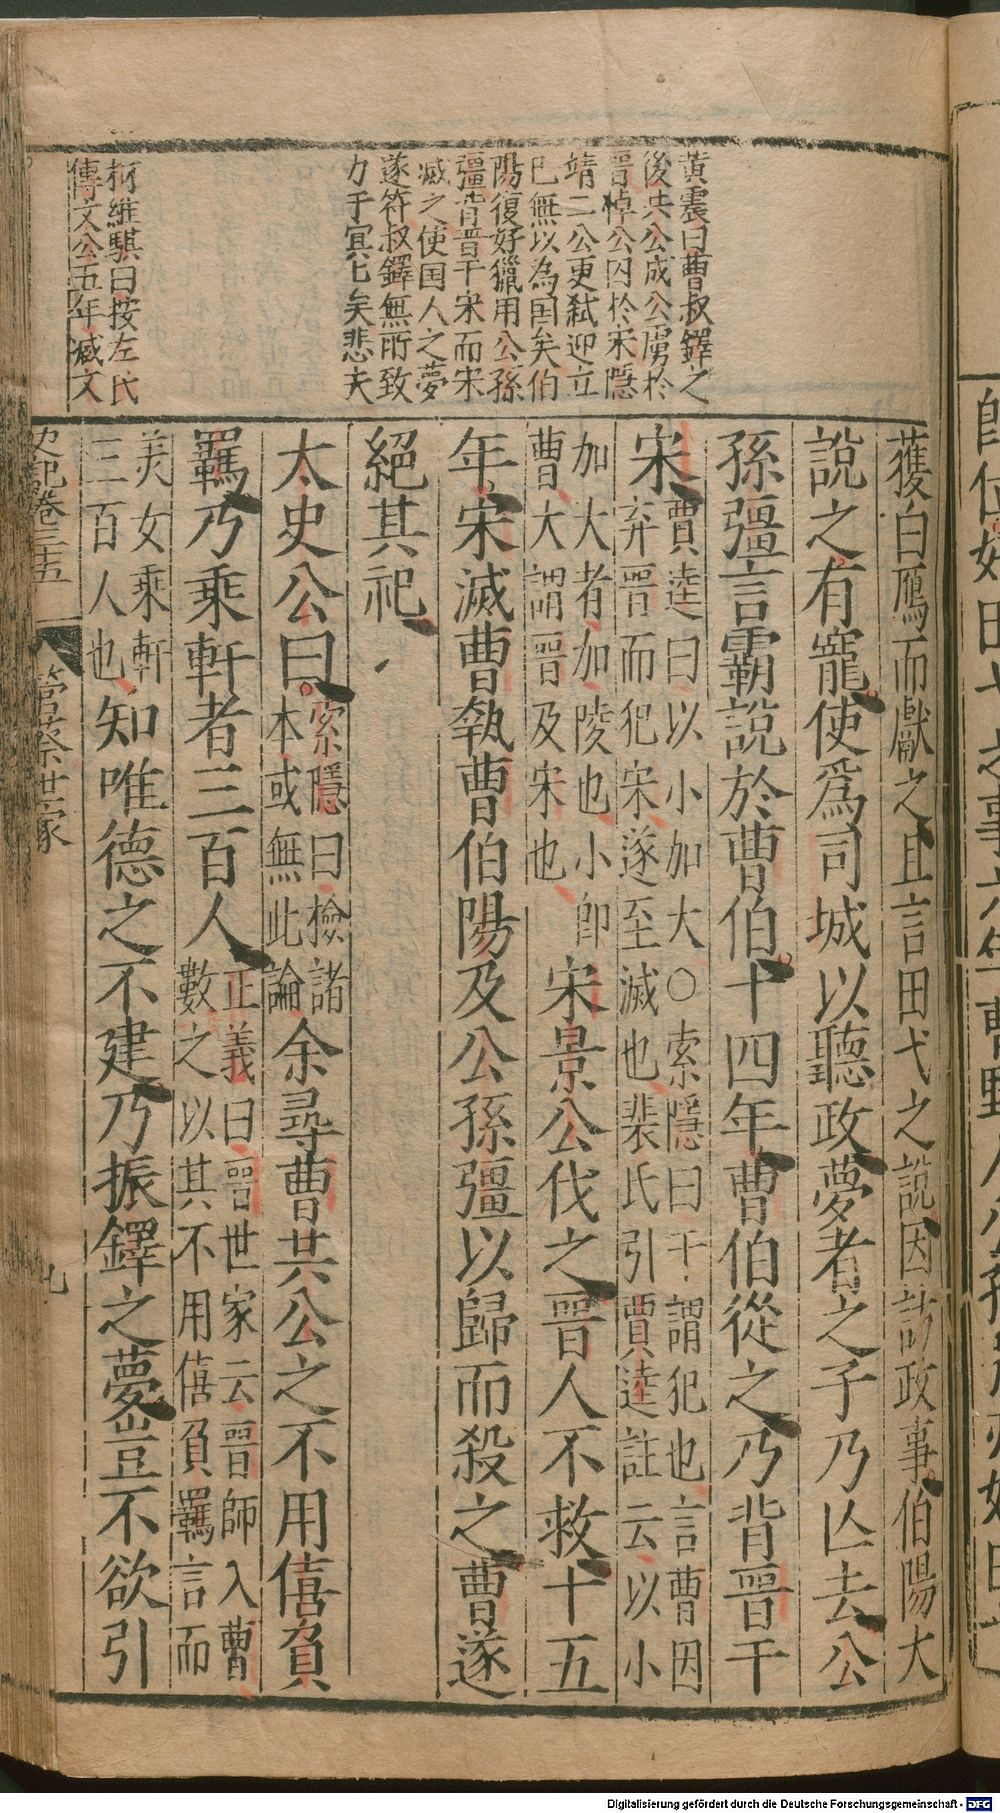 黃震曰曹叔鐸之
後共公成公虜於
晉悼公囚於宋隱
靖二公更弒迎立
已無以為國矣伯
陽復好獵用公孫
彊背晉干宋而宋
滅之使国人之夢
遂符叔鐸無所致
力于冥乜矣悲夫
柯維騏曰按左氏
傳文公五年臧文
獲白鴈而獻之且言田弋之說因訪政事伯陽大
說之有寵使爲司城以聽政夢者之子乃亾去公
孫彊言霸說於曹伯十四年曹伯從之乃背晉干
宋賈逵曰以小加大○索隱曰干謂犯也言曹因
弃晉而犯宋遂至滅也裴氏引賈逵註云以小
加大者加陵也小卽
曹大謂晉及宋也
宋景公伐之晉人不救十五
年宋滅曹執曹伯陽及公孫彊以歸而殺之曹遂
絕其祀
太史公曰
索隱曰檢諸
本或無此論
余尋曹共公之不用僖負
羈乃乘軒者三百人
正義曰晉世家云晉師入曹
數之以其不用僖負羈言而
美女乘軒
三百人也
知唯德之不建乃振鐸之夢豈不欲引
史記卷三十五
管蔡世家
九
Digitalisierung gefördert durch die Deutsche Forschungsgemeinschaft - DFG